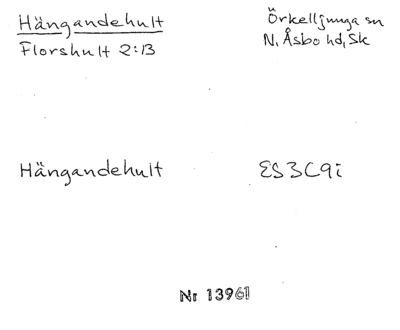 Hängandehult
Florshult 2:13
Örkelljunga sn
N. Åsbo hd, Sk
Hängandehult
ES3C9i
Nr 13961